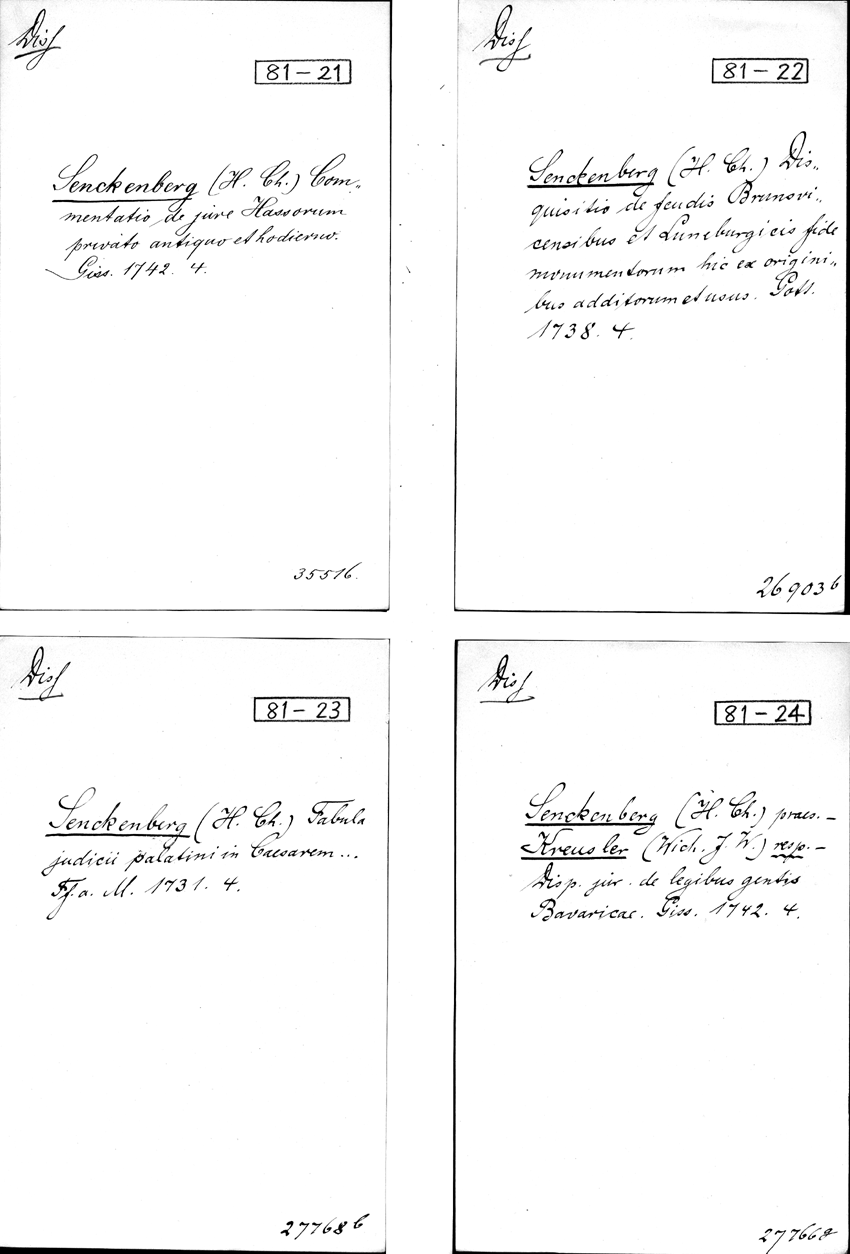 Diss
81-21
Senckenberg (H. Ch.) Com-
mentatio de jure Hassorum
privato antiquo et hodierno.
Giss. 1742. 4.
35516.
Diss
81-22
Senckenberg (H. Ch.) Dis-
quisitio de feudis Brunsvi-
censibus et Luneburgicis fide
monumentorum hic ex origini-
bus additorum et usus. Gott.
1738. 4.
26903b
Diss
81-23
Senckenberg (H. Ch.) Fabula
judicii palatini in Caesarem...
Ff. a. M. 1731. 4.
27768b
Diss
81-24
Senckenberg (H. Ch.) praes. -
Kreusler (Wich. J. W.) resp. -
Disp. jur. de legibus gentis
Bavaricae. Giss. 1742. 4.